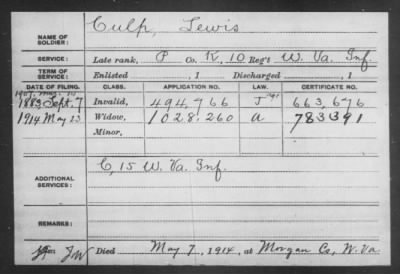 NAME OF SOLDIER: Culp, Lewis
SERVICE: Late rank, P Co. K, 10 Reg't W. Va. Inf.
TERM OF SERVICE: Enlisted , 1 Discharged , 1
DATE OF FILING. CLASS. APPLICATION NO. LAW. CERTIFICATE NO.
1883 Sept. 7 Invalid, 494,766 J 663,676
1914 May 23 Widow, 1028,260 a 783391
Minor,
ADDITIONAL SERVICES: C, 15 W. Va. Inf.
REMARKS:
Died May 7, 1914, at Morgan Co, W. Va.